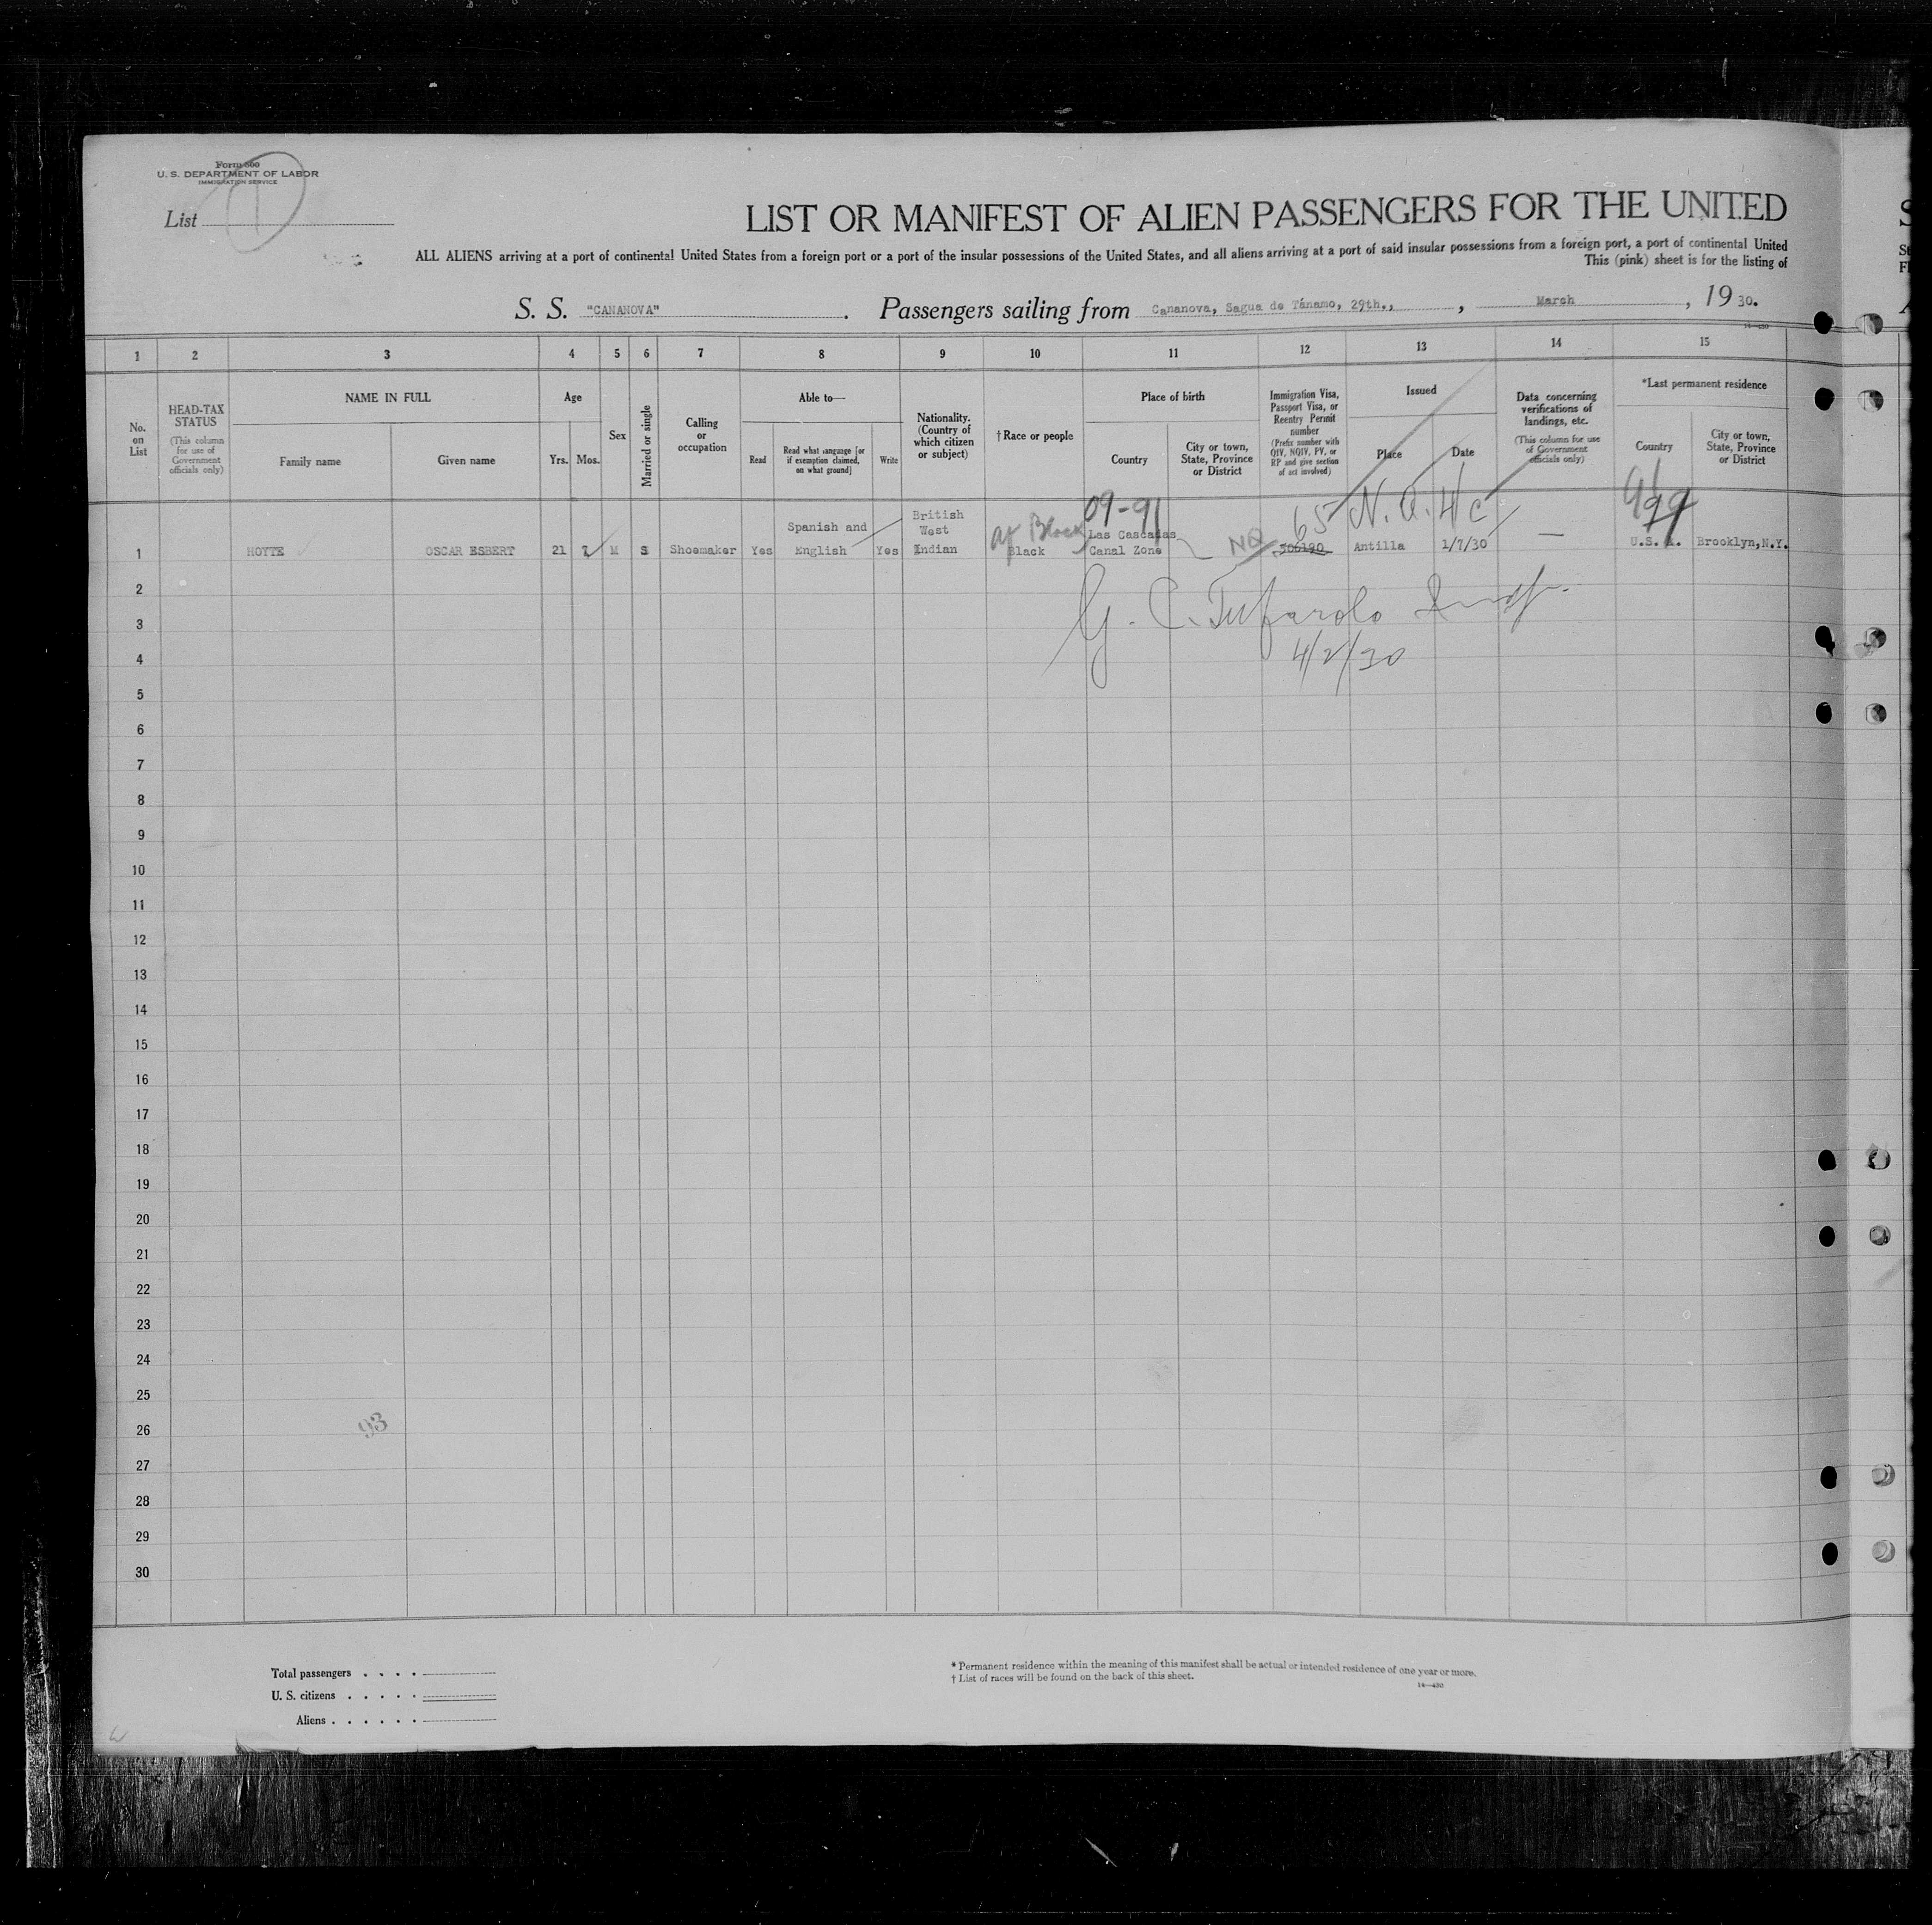 Form 500
U. S. DEPARTMENT OF LABOR
IMMIGRATION SERVICE
List 1
LIST OR MANIFEST OF ALIEN PASSENGERS FOR THE UNITED
ALL ALIENS arriving at a port of continental United States from a foreign port or a port of the insular possessions of the United States, and all aliens arriving at a port of said insular possessions from a foreign port, a port of continental United
This (pink) sheet is for the listing of
S. S. "CANANOVA". Passengers sailing from Cananova, Sagua de Tánamo, 29th., , March , 1930.
1 2 3 4 5 6 7 8 9 10 11 12 13 14 15
No. on List
HEAD-TAX STATUS
(This column for use of Government officials only)
NAME IN FULL
Family name Given name
Age
Yrs. Mos.
Sex
Married or single
Calling or occupation
Able to—
Read
Read what language [or if exemption claimed, on what ground]
Write
Nationality. (Country of which citizen or subject)
†Race or people
Place of birth
Country
City or town, State, Province or District
Immigration Visa, Passport Visa, or Reentry Permit number
(Prefix number with QIV, NQIV, PV, or RP and give section of act involved)
Issued
Place Date
Data concerning verifications of landings, etc.
(This column for use of Government officials only)
*Last permanent residence
Country
City or town, State, Province or District
09-91 65 N. Q. 4/c 99
1 HOYTE OSCAR ESBERT 21 7 M S Shoemaker Yes Spanish and English Yes British West Indian Af Black Black Las Cascadas Canal Zone NQ Antilla 1/7/30 — U.S. A. Brooklyn,N.Y.
G. C. Tufarolo Insp.
4/2/30
2
3
4
5
6
7
8
9
10
11
12
13
14
15
16
17
18
19
20
21
22
23
24
25
26
93
27
28
29
30
Total passengers . . . .
U. S. citizens . . . . .
Aliens . . . . . .
* Permanent residence within the meaning of this manifest shall be actual or intended residence of one year or more.
† List of races will be found on the back of this sheet.
14—430